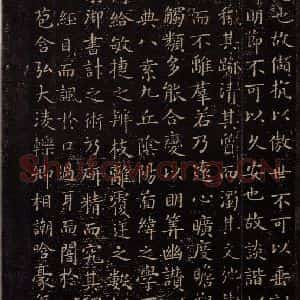 也故頡抗以傲世不可以垂
明節不可以久安也故談諧
穢其跡清其質而濁其文弛
而不離羣若乃遠心曠度贍
觸類多能合變以明筭幽讚
典八索九丘陰陽圖緯之學
給敏捷之辯枝離覆逆之數
御書計之術乃研精而究其
經目而諷於口過耳而闇於
苞含弘大淩轢卿相嘲哈豪
Shufawang.CN